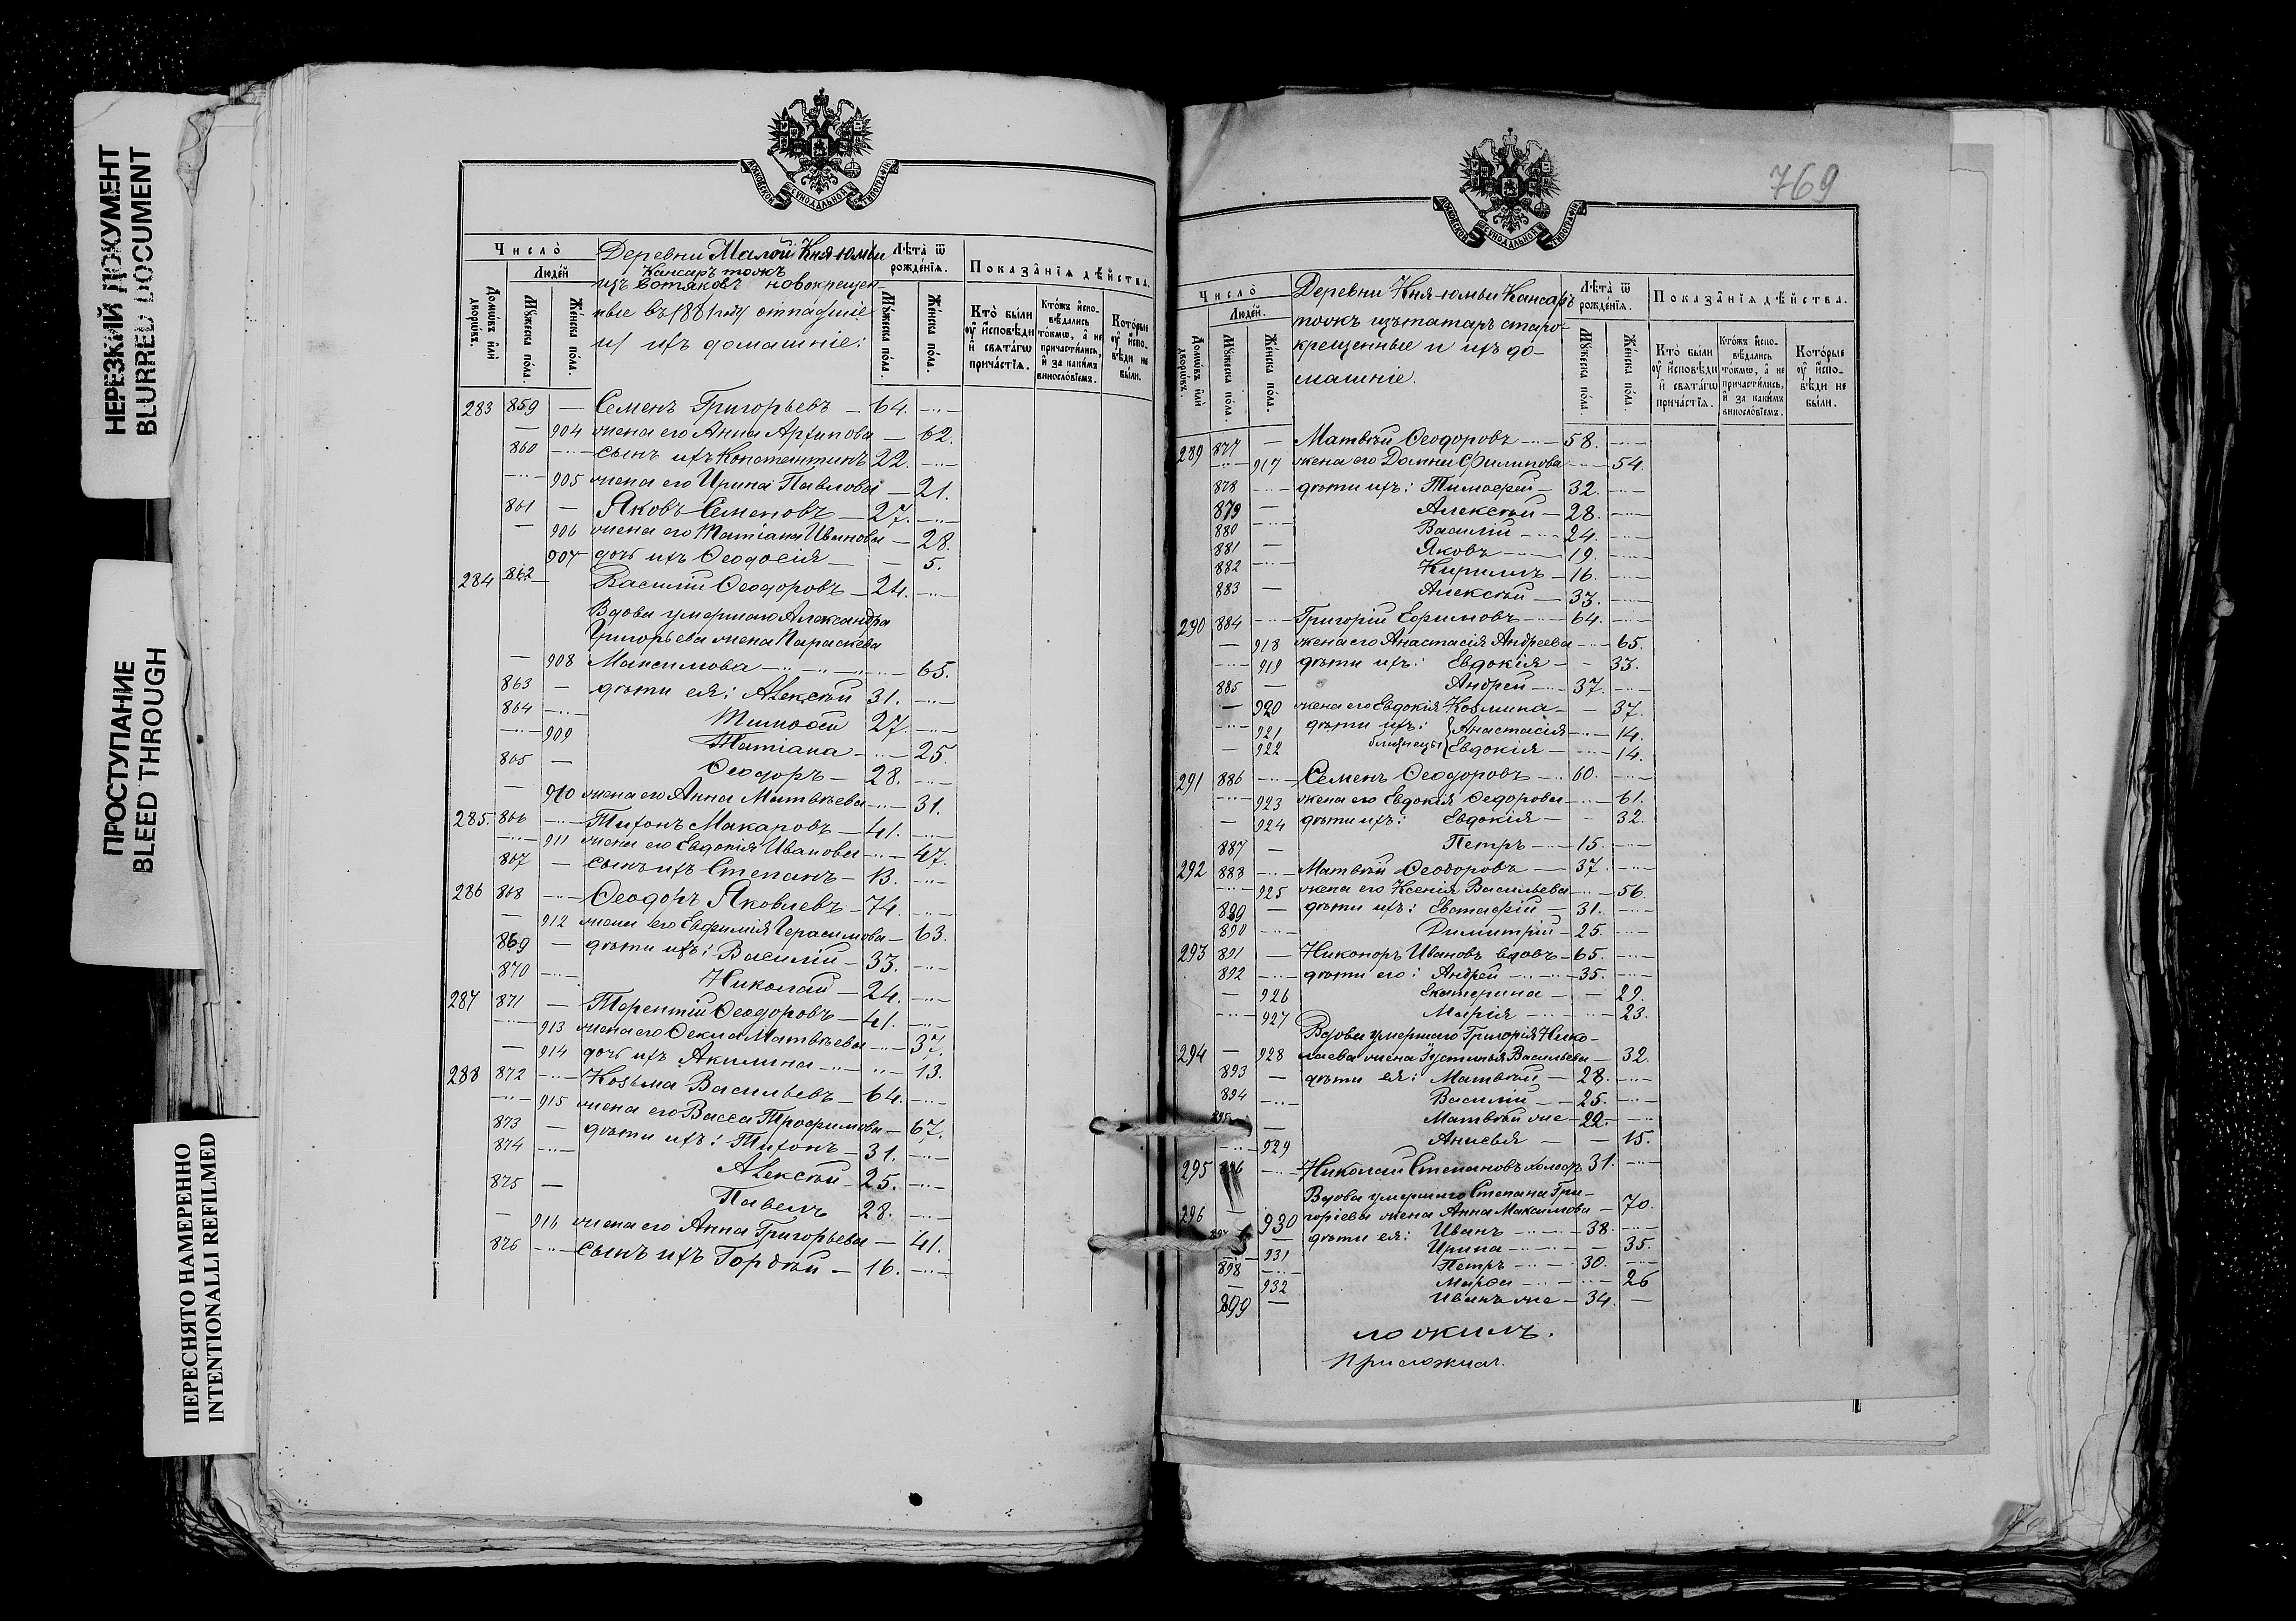 НЕРЕЗКИЙ ДОКУМЕНТ
BLURRED DOCUMENT
ПРОСТУПАНИЕ
BLEED THROUGH
ПЕРЕСНЯТО НАМЕРЕННО
INTENTIONALLI REFILMED
МОСКОВСКОЙ СѴНОДАЛЬНОЙ ТИПОГРАФІИ
Число̀
Людéй
Домѡ́въ и҆лѝ дворѡ́въ.
Мꙋ́жеска по́ла.
Же́нска по́ла.
Деревни Малой Кня-юмьи
Кансаръ толкъ
изъ вотяковъ новокрещен
ные въ 1881 году отпавшіе
и ихъ домашніе:
Лѣ́та ѿ рожде́нїѧ.
Мꙋ́жеска по́ла.
Же́нска по́ла.
Показа̂нїѧ дѣ́йства.
Кто̀ бы́ли оу҆ и҆сповѣ́ди и҆ свѧта́гѡ прича́стїѧ.
Кто́жъ и҆спо-вѣ́дались то́кмѡ, а҆ не причасти́лись, и҆ за каки́мъ винослові́емъ.
Кото́рые оу҆ и҆спо-вѣ́ди не бы́ли.
283 859 — Семенъ Григорьевъ — 64. —
— 904 жена его Анна Архипова — 62.
860 — сынъ ихъ Константинъ 22. —
— 905 жена его Ирина Павлова — 21.
861 — Яковъ Семеновъ — 27. —
— 906 жена его Татіана Иванова — 28.
907 дочь ихъ Ѳеодосія — — 5.
284 862 — Василій Ѳеодоровъ — 24. —
Вдова умершаго Александра
Григорьева жена Параскева
— 908 Максимова — 65.
863 — дѣти ея: Алексѣй 31. —
864 — Тимоѳей 27. —
— 909 Татіана — 25.
865 — Ѳеодоръ — 28. —
— 910 жена его Анна Матвѣева — 31.
285. 866 — Тихонъ Макаровъ — 41. —
— 911 жена его Евдокія Иванова — 47.
867 — сынъ ихъ Степанъ — 13. —
286 868 — Ѳеодоръ Яковлевъ — 74. —
— 912 жена его Евфимія Герасимова — 63.
869 — дѣти ихъ: Василій — 33. —
870 — Николай — 24. —
287 871 — Терентій Ѳеодоровъ — 41. —
— 913 жена его Ѳекла Матвѣева — 37.
— 914 дочь ихъ Акилина — 13.
288 872 — Козьма Васильевъ — 64. —
— 915 жена его Васса Трофимова — 67.
873 — дѣти ихъ: Тихонъ — 31. —
874 — Алексѣй — 25. —
875 — Павелъ 28. —
— 916 жена его Анна Григорьева — 41.
876 — сынъ ихъ Гордѣй — 16. —
769
МОСКОВСКОЙ СѴНОДАЛЬНОЙ ТИПОГРАФІИ
Число̀
Людéй.
Домѡ́въ и҆лѝ дворѡ́въ.
Мꙋ́жеска по́ла
Же́нска по́ла.
Деревни Кня-юмьи Кансаръ
толкъ изъ татаръ старо-
крещенные и ихъ до-
машніе.
Лѣ́та ѿ рожде́нїѧ.
Мꙋ́жеска по́ла
Же́нска по́ла.
Показа̂нїѧ дѣ́йства.
Кто̀ бы́ли оу҆ и҆сповѣ́ди и҆ свѧта́гѡ прича́стїѧ.
Кто́жъ и҆спо-вѣ́дались то́кмѡ, а҆ не причасти́лись, и҆ за каки́мъ винослові́емъ.
Кото́рые оу҆ и҆спо-вѣ́ди не бы́ли.
289 877 — Матвѣй Ѳеодоровъ — 58. —
— 917 жена его Домна Филипова — 54.
878 — дѣти ихъ: Тимофей — 32. —
879 — Алексѣй — 28. —
880 — Василій — 24. —
881 — Яковъ — 19. —
882 — Кирилъ — 16. —
883 — Алексѣй — 33. —
290 884 — Григорій Ефимовъ — 64. —
— 918 жена его Анастасія Андреева — 65.
— 919 дѣти ихъ: Евдокія — 33.
885 — Андрей — 37. —
— 920 жена его Евдокія Козмина — 37.
— 921 дѣти ихъ: Анастасія — 14.
— 922 близнецы Евдокія — 14.
291 886 — Семенъ Ѳеодоровъ — 60. —
— 923 жена его Евдокія Ѳедорова — 61.
— 924 дѣти ихъ: Евдокія — 32.
887 — Петръ — 15. —
292 888 — Матвѣй Ѳеодоровъ — 37. —
— 925 жена его Ксенія Васильева — 56.
889 — дѣти ихъ: Евстафій — 31. —
890 — Димитрій — 25. —
293 891 — Никоноръ Ивановъ вдовъ — 65. —
892 — дѣти его: Андрей — 35. —
— 926 Екатерина — 29.
— 927 Марія — 23.
Вдова умершаго Григорія Нико-
294 — 928 лаева жена Густинья Васильева — 32.
893 — дѣти ея: Матвѣй — 28. —
894 — Василій — 25. —
895 — Матвѣй же — 22. —
— 929 Анисья — 15.
295 896 — Николай Степановъ холост 31. —
Вдова умершаго Степана Гри-
296 — 930 горіева жена Анна Максимова — 70.
897 — дѣти ея: Иванъ — 38. —
— 931 Ирина — 35.
898 — Петръ — 30. —
— 932 Марѳа — 26
899 — Иванъ же — 34. —